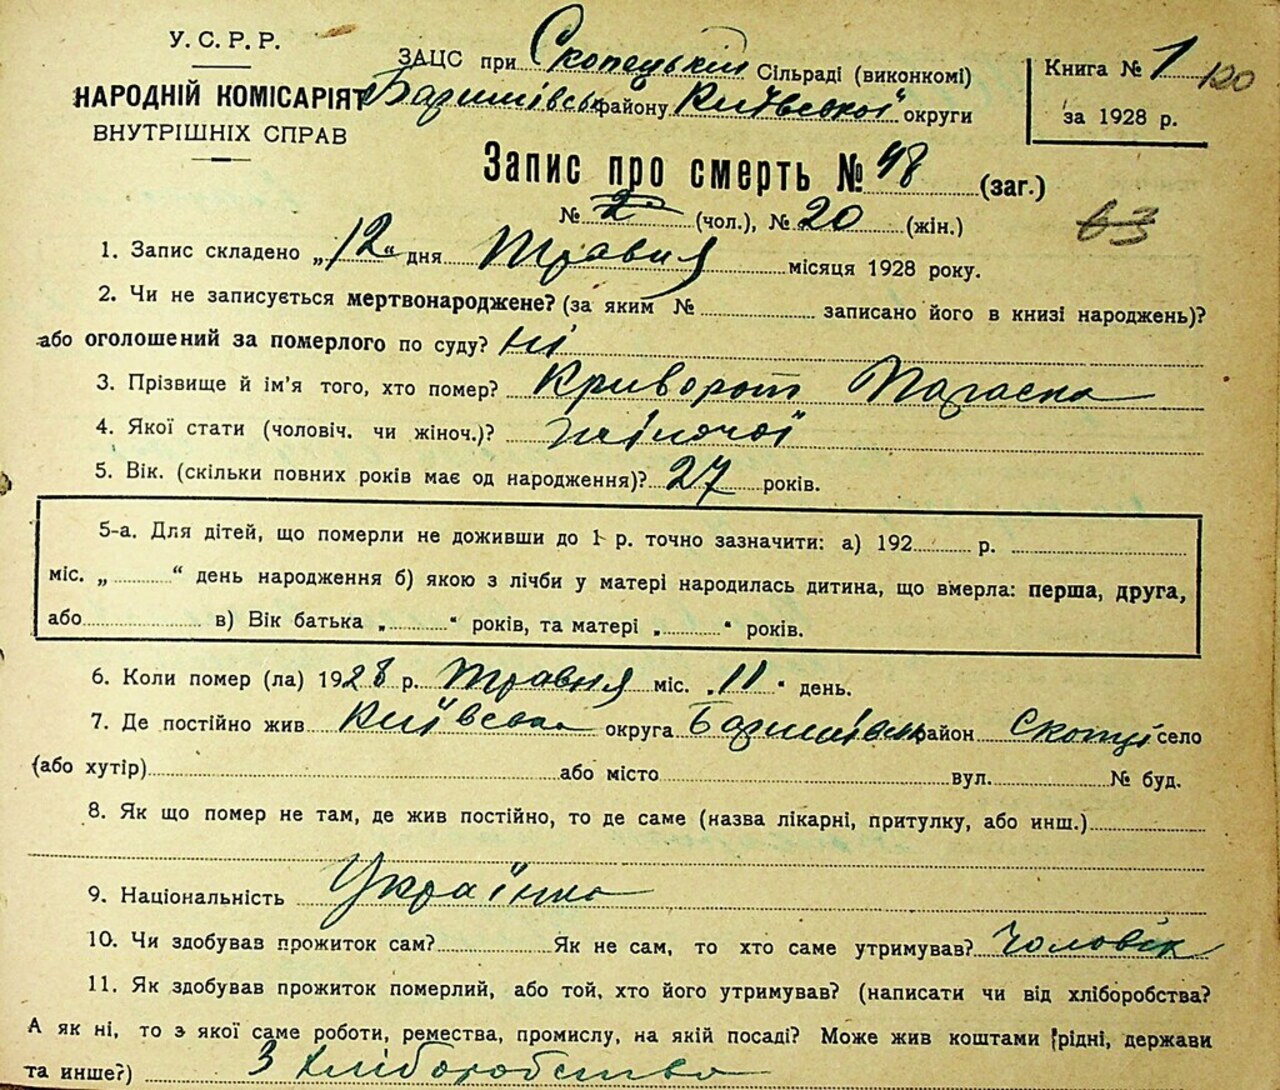 У. С. Р. Р.
НАРОДНІЙ КОМІСАРІЯТ
ВНУТРІШНІХ СПРАВ
ЗАЦС при Скопецькій Сільраді (виконкомі)
Баришівськ району Київської округи
Книга № 1 120
за 1928 р.
Запис про смерть № 48 (заг.)
№ 2 (чол.), № 20 (жін.)
63
1. Запис складено „12“ дня Травня місяця 1928 року.
2. Чи не записується мертвонароджене? (за яким № записано його в книзі народжень)?
або оголошений за померлого по суду? Ні
3. Прізвище й ім'я того, хто помер? Криворот Параска
4. Якої стати (чоловіч. чи жіноч.)? жіночої
5. Вік. (скільки повних років має од народження)? 27 років.
5-а. Для дітей, що померли не доживши до 1 р. точно зазначити: а) 192 р.
міс. „ “ день народження б) якою з лічби у матері народилась дитина, що вмерла: перша, друга,
або в) Вік батька „ “ років, та матері „ “ років.
6. Коли помер (ла) 1928 р. травня міс. „11“ день.
7. Де постійно жив Київська округа Баришівськ район Скопці село
(або хутір) або місто вул. № буд.
8. Як що помер не там, де жив постійно, то де саме (назва лікарні, притулку, або инш.)
9. Національність Українка
10. Чи здобував прожиток сам? Як не сам, то хто саме утримував? Чоловік
11. Як здобував прожиток померлий, або той, хто його утримував? (написати чи від хліборобства?
А як ні, то з якої саме роботи, ремества, промислу, на якій посаді? Може жив коштами рідні, держави
та инше?) З хліборобства